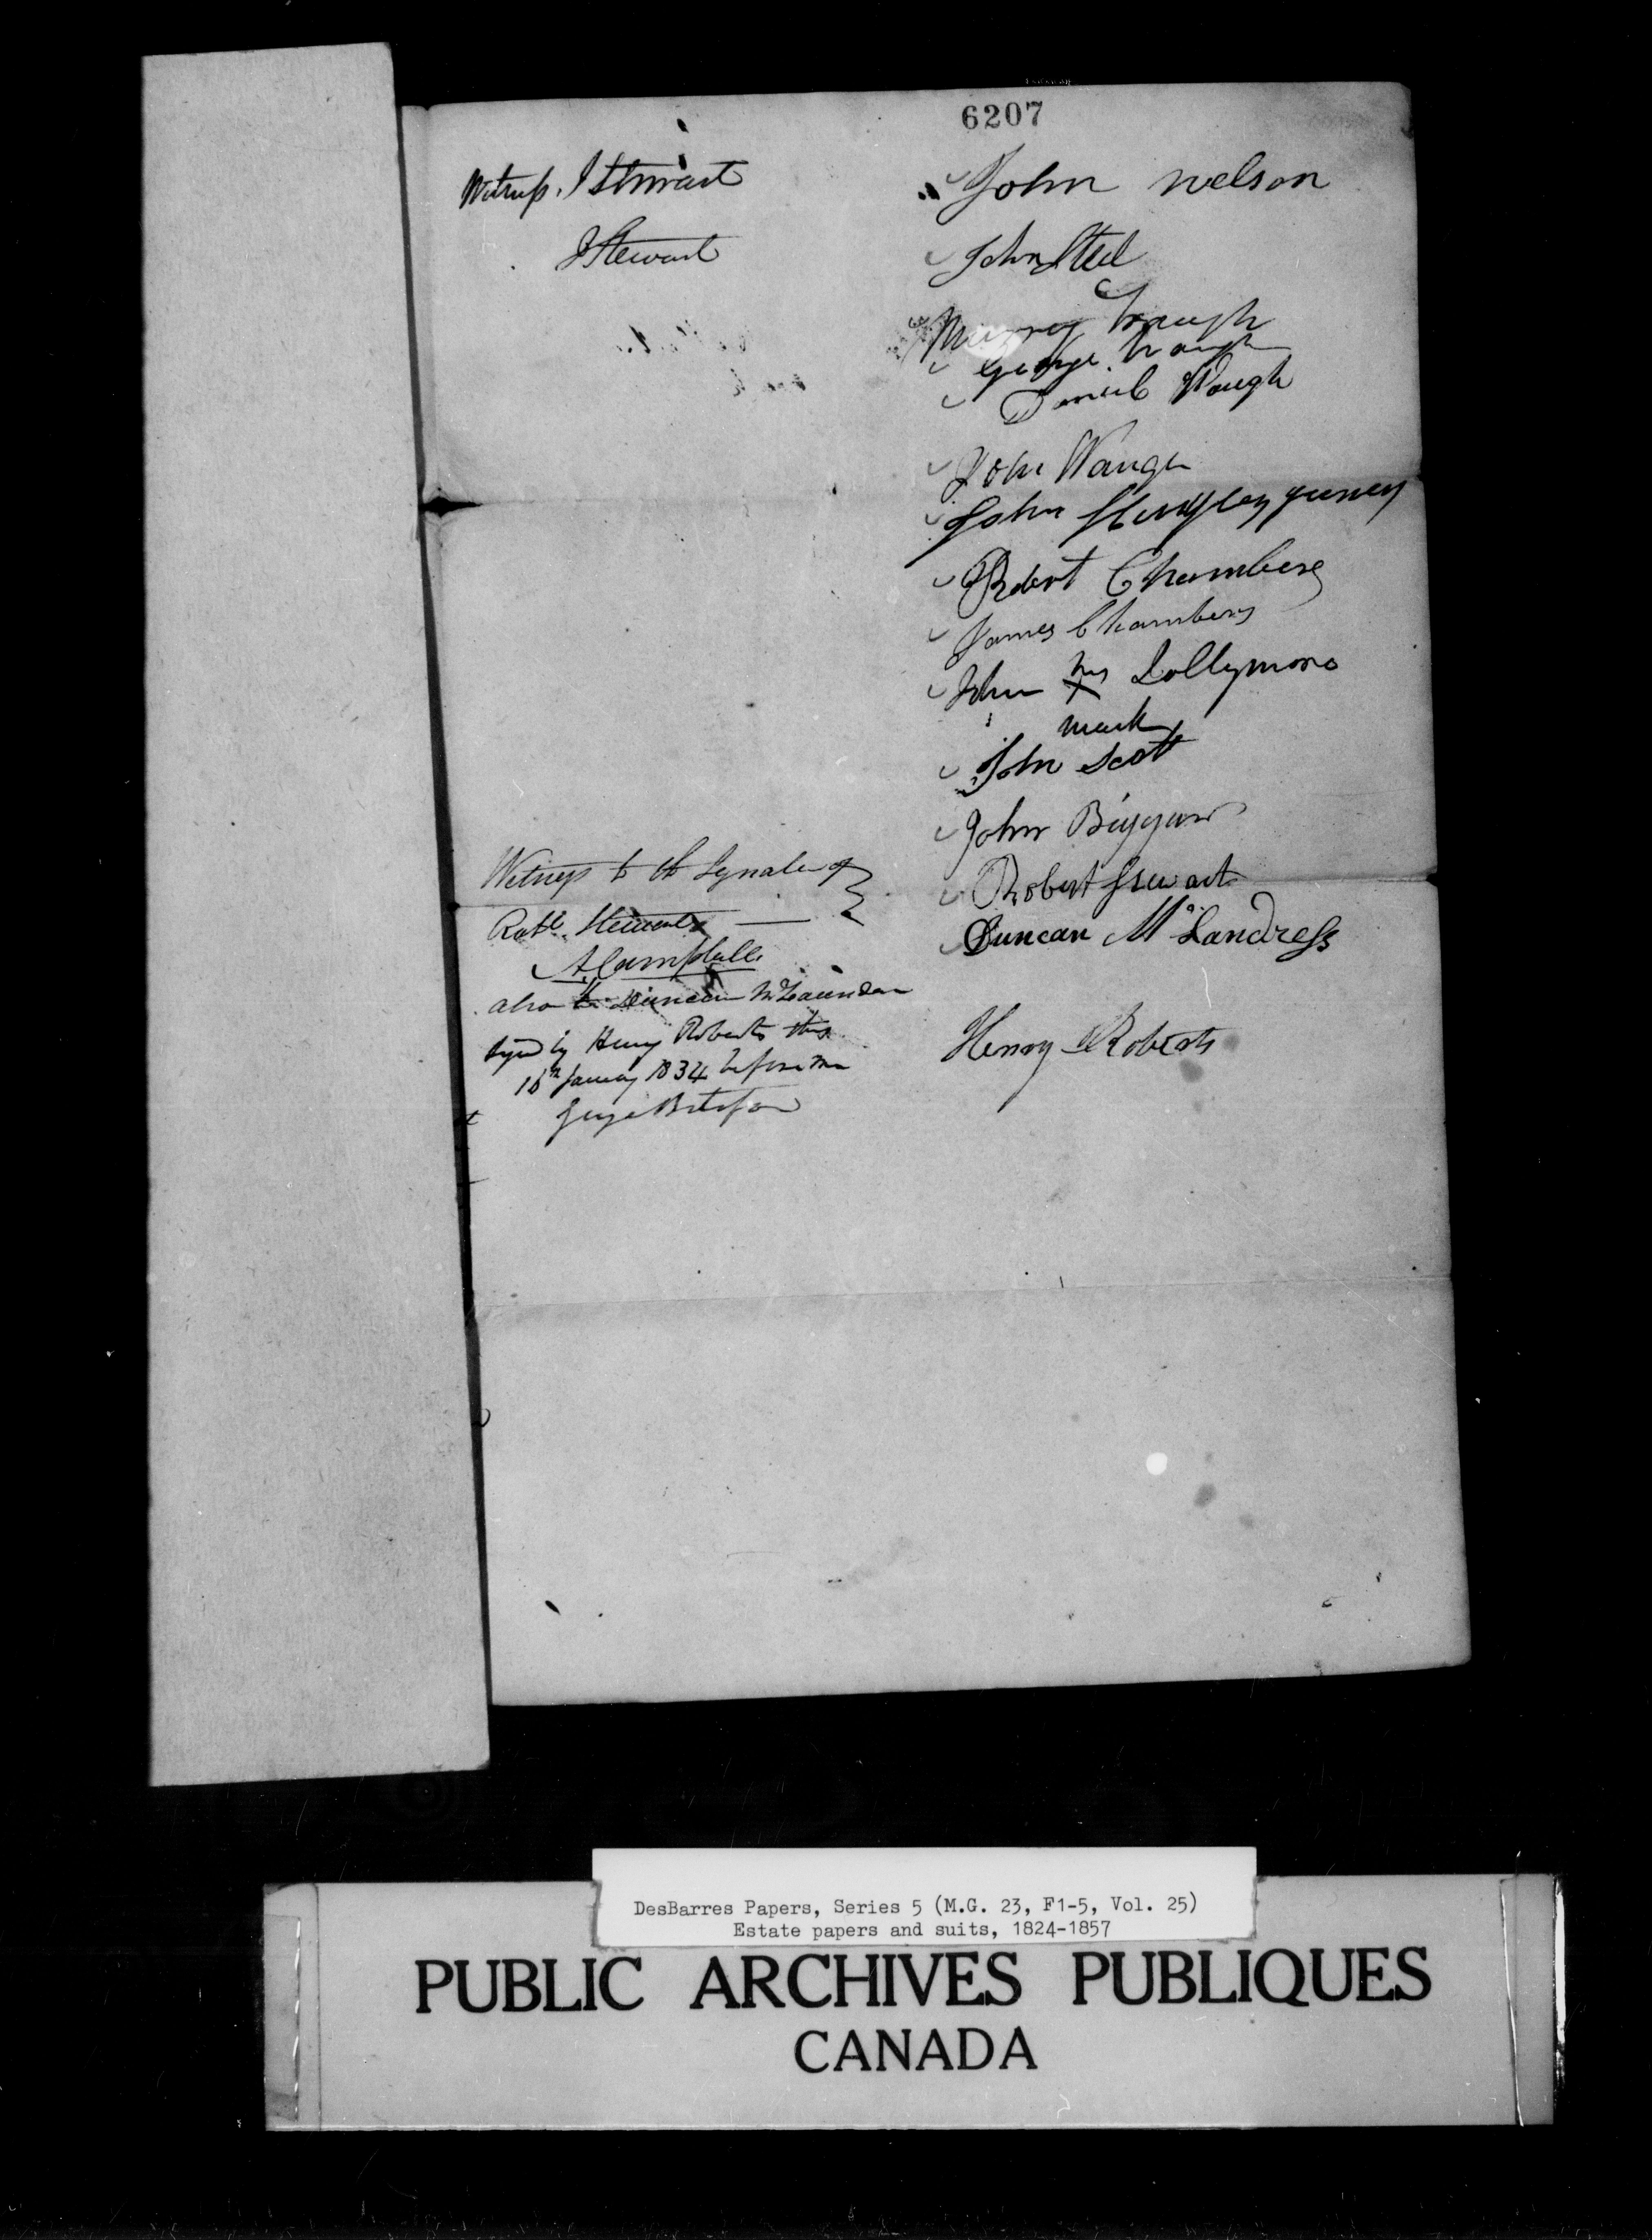 6207
Witness. J Stewart
J Stewart
John Nelson
John Steel
Murray Waugh
George Waugh
Daniel Waugh
John Waugh
John
Robert Chambers
James Chambers
John his X Dollymore
mark
John Scott
John Biggar
Robert Stewart
Duncan Mc Landress
Henry Roberts
Witness to th Signature of
Robt. Stewart
A Campbell
also to Duncan McLaundon
Signed by Henry Roberts this
16th January 1834 before me
DesBarres Papers, Series 5 (M.G. 23, F1-5, Vol. 25)
Estate papers and suits, 1824-1857
PUBLIC ARCHIVES PUBLIQUES
CANADA